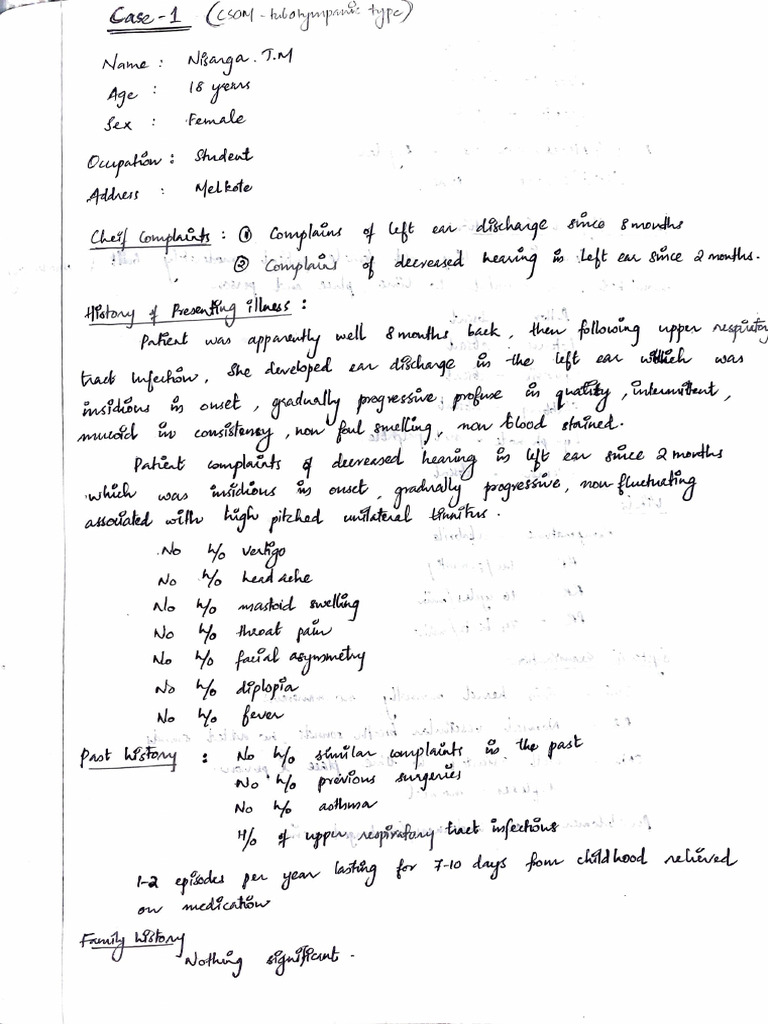 Case - 1 (CSOM - tubotympanic type)
Name : Nisarga. J.M
Age : 18 years
Sex : Female
Occupation : Student
Address : Melkote
Cheif Complaints : ① Complains of left ear discharge since 8 months
② Complains of decreased hearing in left ear since 2 months.
History of Presenting illness :
Patient was apparently well 8 months back, then following upper respiratory
tract infection, she developed ear discharge in the left ear which was
insidious in onset, gradually progressive, profuse in quality, intermittent,
mucoid in consistency, non foul smelling, non blood stained.
Patient complaints of decreased hearing in left ear since 2 months
which was insidious in onset, gradually progressive, non fluctuating
associated with high pitched unilateral tinnitus.
No h/o vertigo
No h/o headache
No h/o mastoid swelling
No h/o throat pain
No h/o facial asymmetry
No h/o diplopia
No h/o fever
Past history : No h/o similar complaints in the past
No h/o previous surgeries
No h/o asthma
H/o of upper respiratory tract infections
1-2 episodes per year lasting for 7-10 days from childhood relieved
on medication
Family history
Nothing significant.